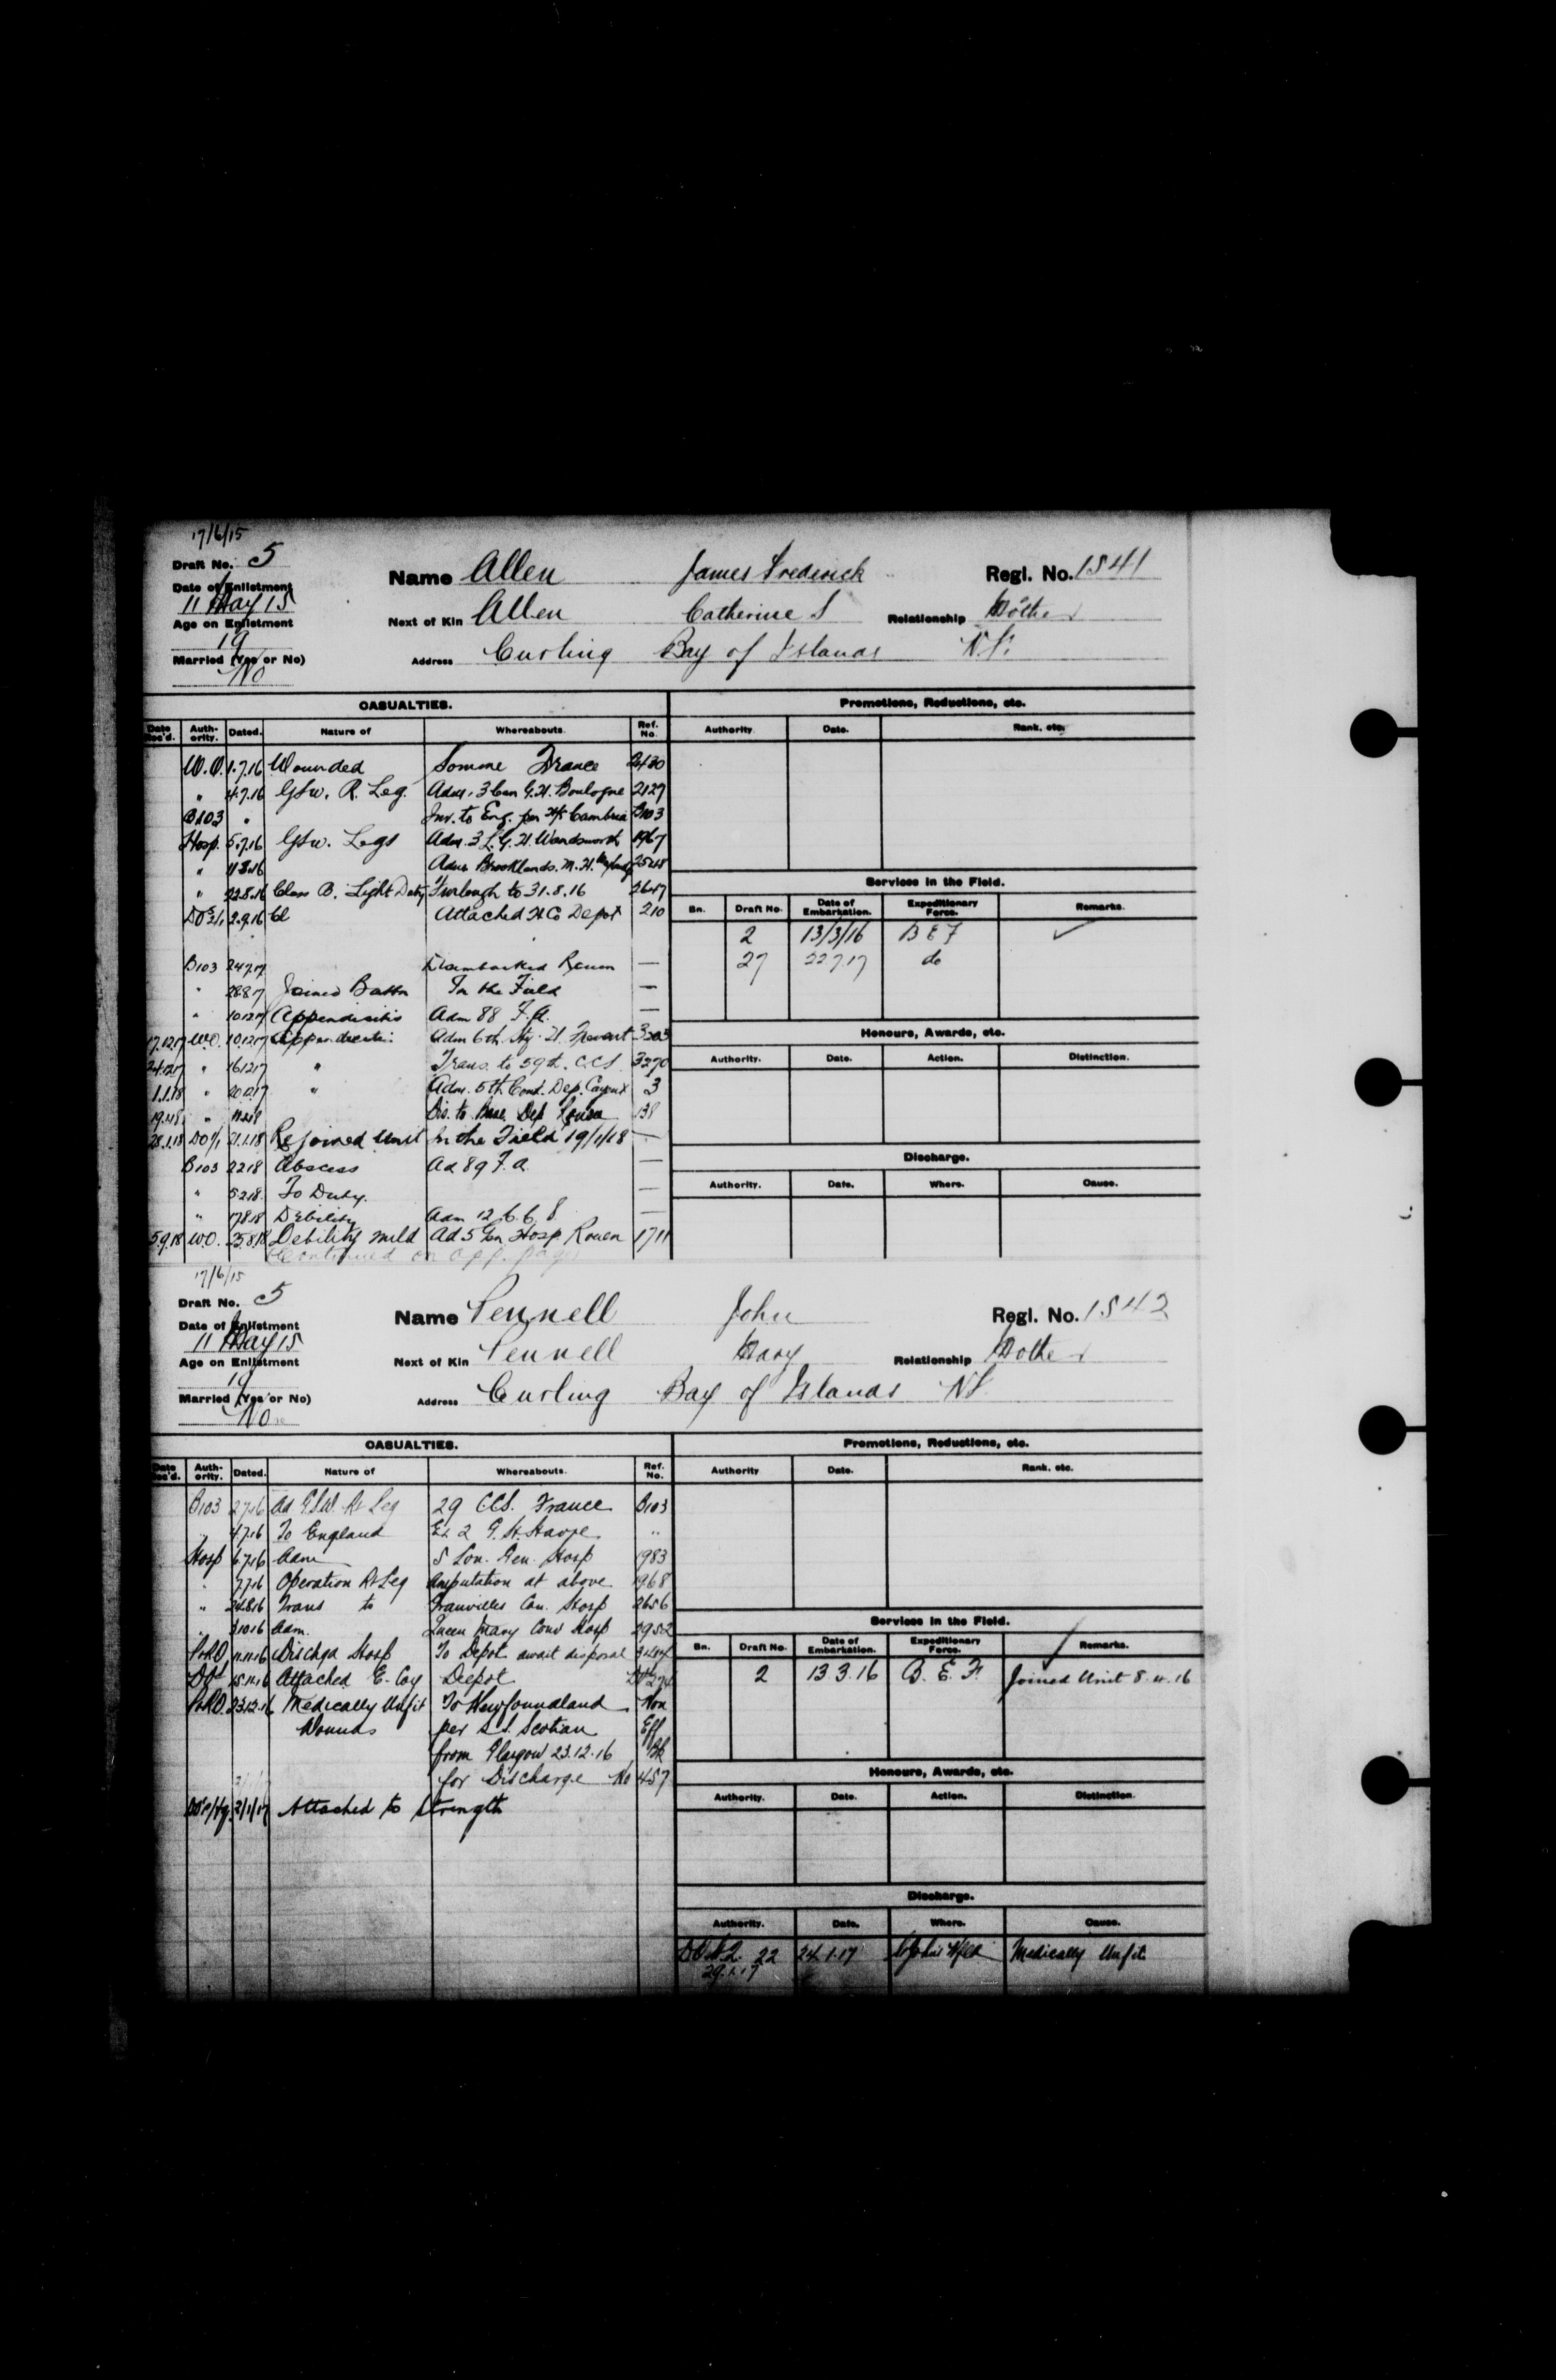 17/6/15
Draft No. 5
Name Allen James Frederick Regl. No. 1541
Date of Enlistment
11 May 15
Next of Kin Allen Catherine S Relationship Mother
Age on Enlistment
19
Address Curling Bay of Islands N.F.
Married (Yes or No)
No
CASUALTIES. Promotions, Reductions, etc.
Date Rec'd. Authority. Dated. Nature of Whereabouts. Ref. No. Authority Date. Rank, etc.
W.O. 1.7.16 Wounded Somme France 2430
" 4.7.16 GSW. R. Leg. Adm. 3 Can G.H. Boulogne 2127
B103 " Inv. to Eng. per H/S Cambria B103
Hosp. 5.7.16 GSW. Legs Adm. 3 L.G.H. Wandsworth 1967
" Adm Brooklands. M.H. 2528
Services in the Field.
" 22.8.16 Class B. Light Duty Furlough to 31.8.16
Bn. Draft No. Date of Embarkation. Expeditionary Force. Remarks.
2.9.16 Attached H Co Depot 210
2 13/3/16 B E F ✓
B103 24.7.17 Disembarked Rouen —
27 22.7.17 do
" 28.8.17 Joined Battn In the Field —
" 10.12.17 Appendicitis Adm 88 F.A. —
Honours, Awards, etc.
17.12.17 W.O. 10.12.17 Appendicitis Adm 6th Sty. H. 3303
Authority. Date. Action. Distinction.
24.12.17 " 16.12.17 " Trans. to 59th. C.C.S. 3370
1.1.18 " " Adm. 5th Conv. Dep. Cayeux 3
" Dis. to Base Dep Rouen 138
28.1.18 DO/1 21.1.18 Rejoined Unit In the Field 19/1/18 —
Discharge.
B103 2.2.18 Abscess Ad 89 F.A. —
Authority. Date. Where. Cause.
" 5.2.18. To Duty. —
" 17.8.18 Debility Adm 12 —
5.9.18 W.O. 25.8.18 Debility mild Ad 5 Gen Hosp Rouen 1711
(Continued on opp. page)
17/6/15
Draft No. 5
Name Pennell John Regl. No. 1542
Date of Enlistment
11 May 15
Next of Kin Pennell Mary Relationship Mother
Age on Enlistment
19
Address Curling Bay of Islands NF.
Married (Yes or No)
No
CASUALTIES. Promotions, Reductions, etc.
Date Rec'd. Authority. Dated. Nature of Whereabouts. Ref. No. Authority Date. Rank, etc.
B103 2.7.16 Ad G.S.W. Rt Leg 29 CCS. France B103
" 4.7.16 To England Ex 2 G.H. Havre "
Hosp 6.7.16 Adm 5 Lon. Gen. Hosp 1983
" 7.7.16 Operation Rt Leg Amputation at above 1968
" 24.8.16 Trans to Granvilles Can. Hosp 2656
Services in the Field.
" 3.10.16 Adm. Queen Mary Conv Hosp 2952
Bn. Draft No. Date of Embarkation. Expeditionary Force. Remarks. ✓
P&RO. 11.11.16 Dischgd Hosp To Depot await disposal
2 13.3.16 B. E. F. Joined Unit 8.4.16
15.11.16 Attached E. Coy Depot
P&RO. 23.12.16 Medically Unfit To Newfoundland Non
Wounds per S.S. Scotian Eff
from Glasgow 23.12.16 Bk
Honours, Awards, etc.
for Discharge No 457
Authority. Date. Action. Distinction.
Attached to Strength
Discharge.
Authority. Date. Where. Cause.
22 24.1.17 St John's Nfld Medically Unfit
29.1.17